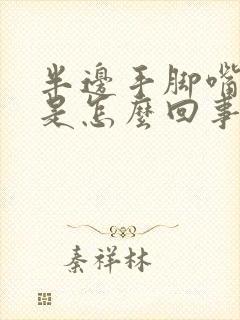 半邊手腳嘴
是怎麼回事
秦祥林